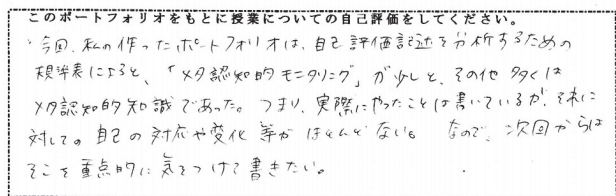 このポートフォリオをもとに授業についての自己評価をしてください。
今回、私の作ったポートフォリオは、自己評価記述を分析するための
規準表によると、「メタ認知的モニタリング」が少しと、その他多くは
メタ認知的知識であった。つまり、実際にやったことは書いているが、それに
対しての自己の対応や変化等がほとんどない。なので、次回からは
そこを重点的に気をつけて書きたい。